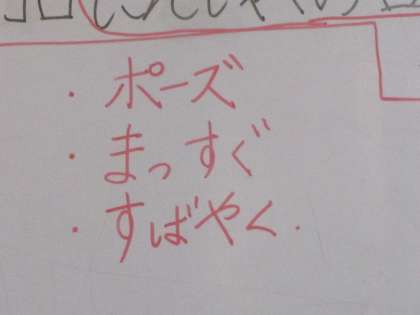 ・ポーズ
・まっすぐ
・すばやく.